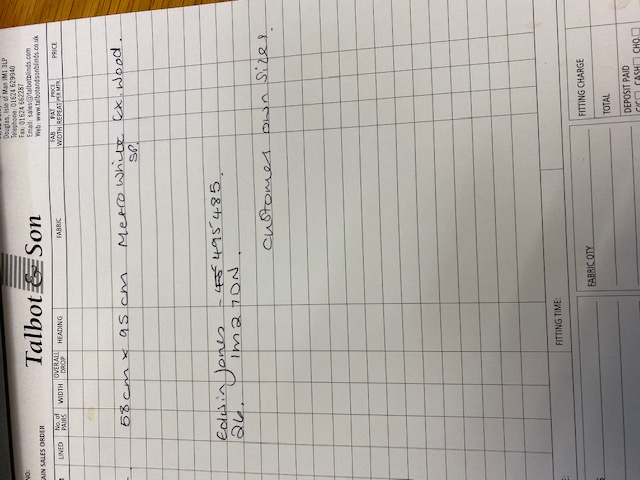 Talbot & Son
Douglas, Isle of Man IM1 3LP
Telephone: 01624 629940
Fax: 01624 662287
Email: sales@talbotblinds.com
Web: www.talbotandsonblinds.co.uk
AIN SALES ORDER
LINED No. of PAIRS WIDTH OVERALL DROP HEADING FABRIC FAB WIDTH PAT REPEAT PRICE PER MTR PRICE
58cm x 95cm Metro White Ex. Wood.
SP.
Edwin Jones - 495485.
26. IM2 7DN.
customer own sizes.
FITTING TIME:
FABRIC QTY
FITTING CHARGE
TOTAL
DEPOSIT PAID
C/C CASH CHQ